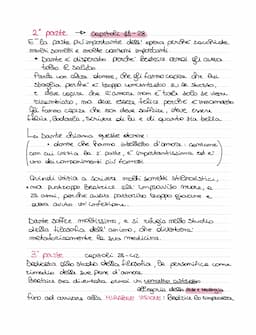 2° parte → capitoli 18-28
E' la parte più importante dell'opera perché racchiude
molti sonetti e molte canzoni importanti
• Dante è disperato perché Beatrice ormai gli aveva
tolto il saluto
Parla con altre donne, che gli fanno capire che lui
sbaglia perché è troppo concentrato su se stesso,
e deve capire che l'amore non è tale solo se viene
ma deve essere felice perché è innamorato
gli fanno capire che non deve soffrire, deve essere
felice, lodarla, scrivere di lei e di quanto sia bella
↳ Dante chiama queste donne:
• donne che hanno intelletto d'amore: canzone
con cui inizia la 2° parte, è importantissima ed è
uno dei componimenti più famosi
Quindi inizia a scrivere molti sonetti stilnovistici,
ma purtroppo Beatrice all'improvviso muore, a
24 anni, perché aveva partorito troppo giovane e
aveva avuto un'infezione.
Dante soffre moltissimo, e si rifugia nello studio
della filosofia dell'animo, che diventerà
metaforicamente la sua medicina.
3° parte capitoli 28-42
Dedicato allo studio della filosofia, la personifica come
rimedio della sua pena d'amore
Beatrice ora diventerà
allegoria della
fino ad arrivare alla MIRABILE VISIONE: Beatrice lo rimprovera